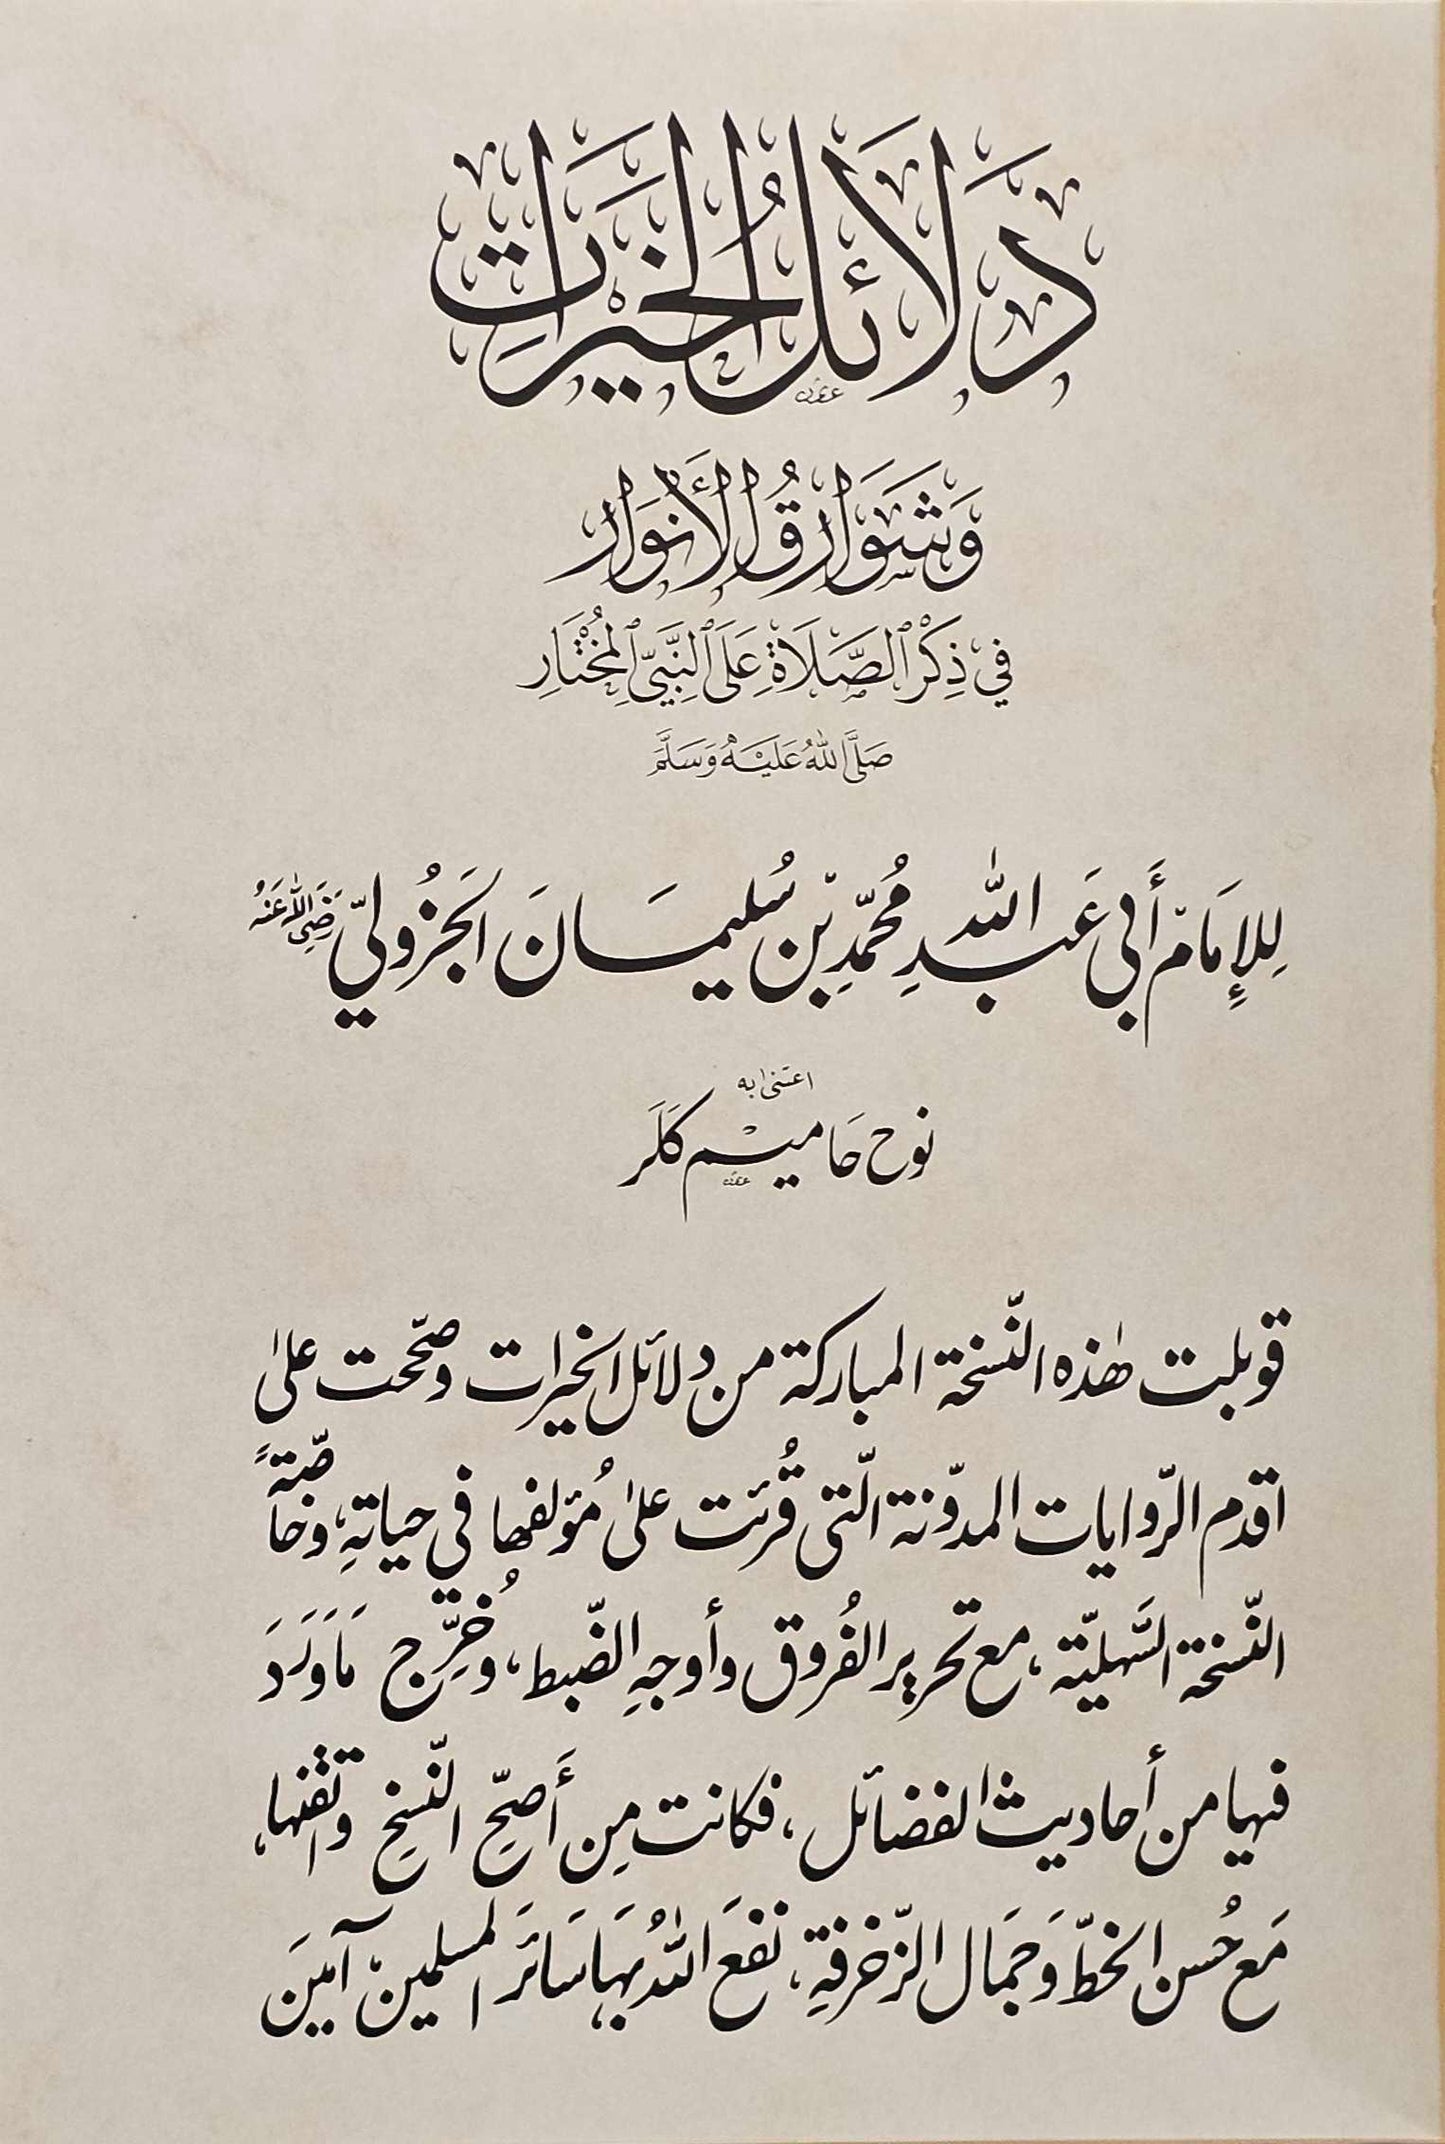 دَلَائِلُ الْخَيْرَاتِ
وَشَوَارِقُ الْأَنْوَارِ
فِي ذِكْرِ ٱلصَّلَاةِ عَلَى ٱلنَّبِيِّ ٱلْمُخْتَارِ
صَلَّى اللهُ عَلَيْهِ وَسَلَّمَ
لِلإِمَامْ أَبِي عَبدِ اللّٰه مُحمَّدِ بْن سُليمَانَ الجَزُوليّ رَضِيَ اللهُ عَنهُ
اعتنىٰ به
نوح حَا ميْم كَلَر
قوبلت هٰذه النّسخة المباركة من دلائل الخيرات وصحّحت علىٰ
اقدم الرّوايات المدوّنة الّتي قُرئت علىٰ مُؤلفها في حياتهِ، وخاصّةً
النّسخة السَّهليّة، مع تحرير الفُروق وأوجهِ الضّبط، وخُرِّج مَا وَرَدَ
فيها من أحاديث الفضائل، فكانت مِن أَصحِّ النّسخِ واتقنها،
مَع حُسن الخطّ وَجمَال الزّخرفةِ، نفعَ اللّٰهُ بهَا سَائرَ المسلمين، آمينَ